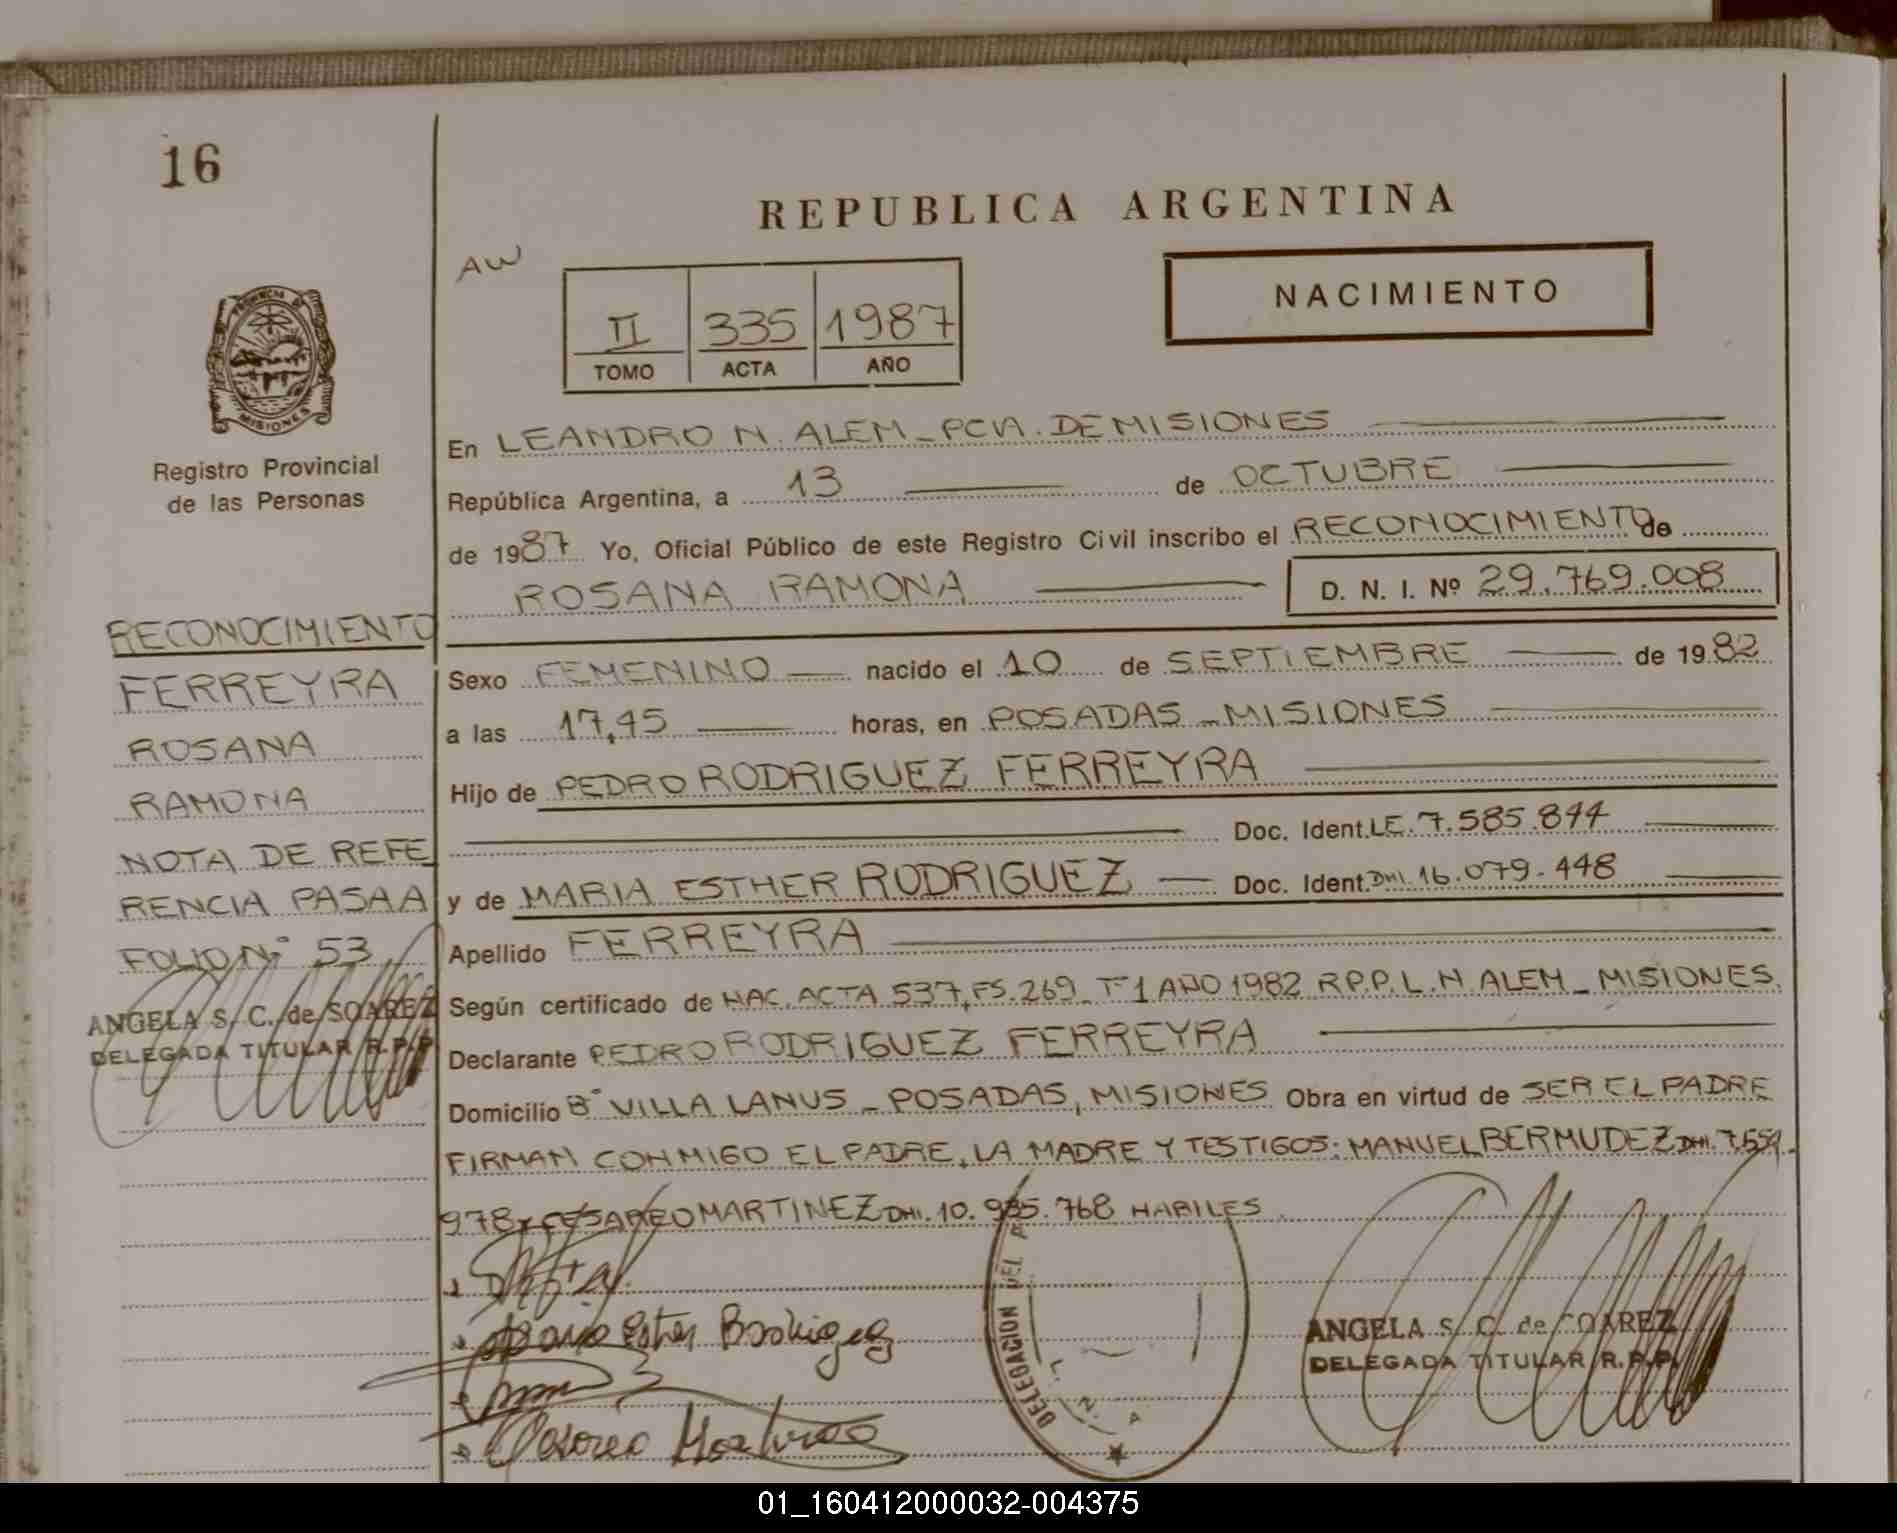 16
REPUBLICA ARGENTINA
AW
NACIMIENTO
II 335 1987
TOMO ACTA AÑO
PROVINCIA DE
MISIONES
Registro Provincial
de las Personas
En LEANDRO N. ALEM - PCIA. DE MISIONES
República Argentina, a 13 de OCTUBRE
de 1987 Yo, Oficial Público de este Registro Civil inscribo el RECONOCIMIENTO de
ROSANA RAMONA D. N. I. Nº 29.769.008
RECONOCIMIENTO
FERREYRA
ROSANA
RAMONA
NOTA DE REFE
RENCIA PASA A
FOLIO Nº 53
ANGELA S. C. de SOAREZ
DELEGADA TITULAR R.P.P.
Sexo FEMENINO nacido el 10 de SEPTIEMBRE de 1982
a las 17,45 horas, en POSADAS - MISIONES
Hijo de PEDRO RODRIGUEZ FERREYRA
Doc. Ident. LE. 7.585.844
y de MARIA ESTHER RODRIGUEZ Doc. Ident. DNI. 16.079.448
Apellido FERREYRA
Según certificado de NAC. ACTA 537, FS. 269 Tº 1 AÑO 1982 R.P.P. L. N. ALEM - MISIONES.
Declarante PEDRO RODRIGUEZ FERREYRA
Domicilio Bº VILLA LANUS - POSADAS, MISIONES Obra en virtud de SER EL PADRE
FIRMAN CONMIGO EL PADRE, LA MADRE Y TESTIGOS: MANUEL BERMUDEZ DNI. 7.659.
978 y CESAREO MARTINEZ DNI. 10.935.768 HABILES.
DELEGACION DEL
L. N. A
ANGELA S. C. de SOAREZ
DELEGADA TITULAR R.P.P.
Maria Ester Rodriguez
Cesareo Martinez
01_160412000032-004375